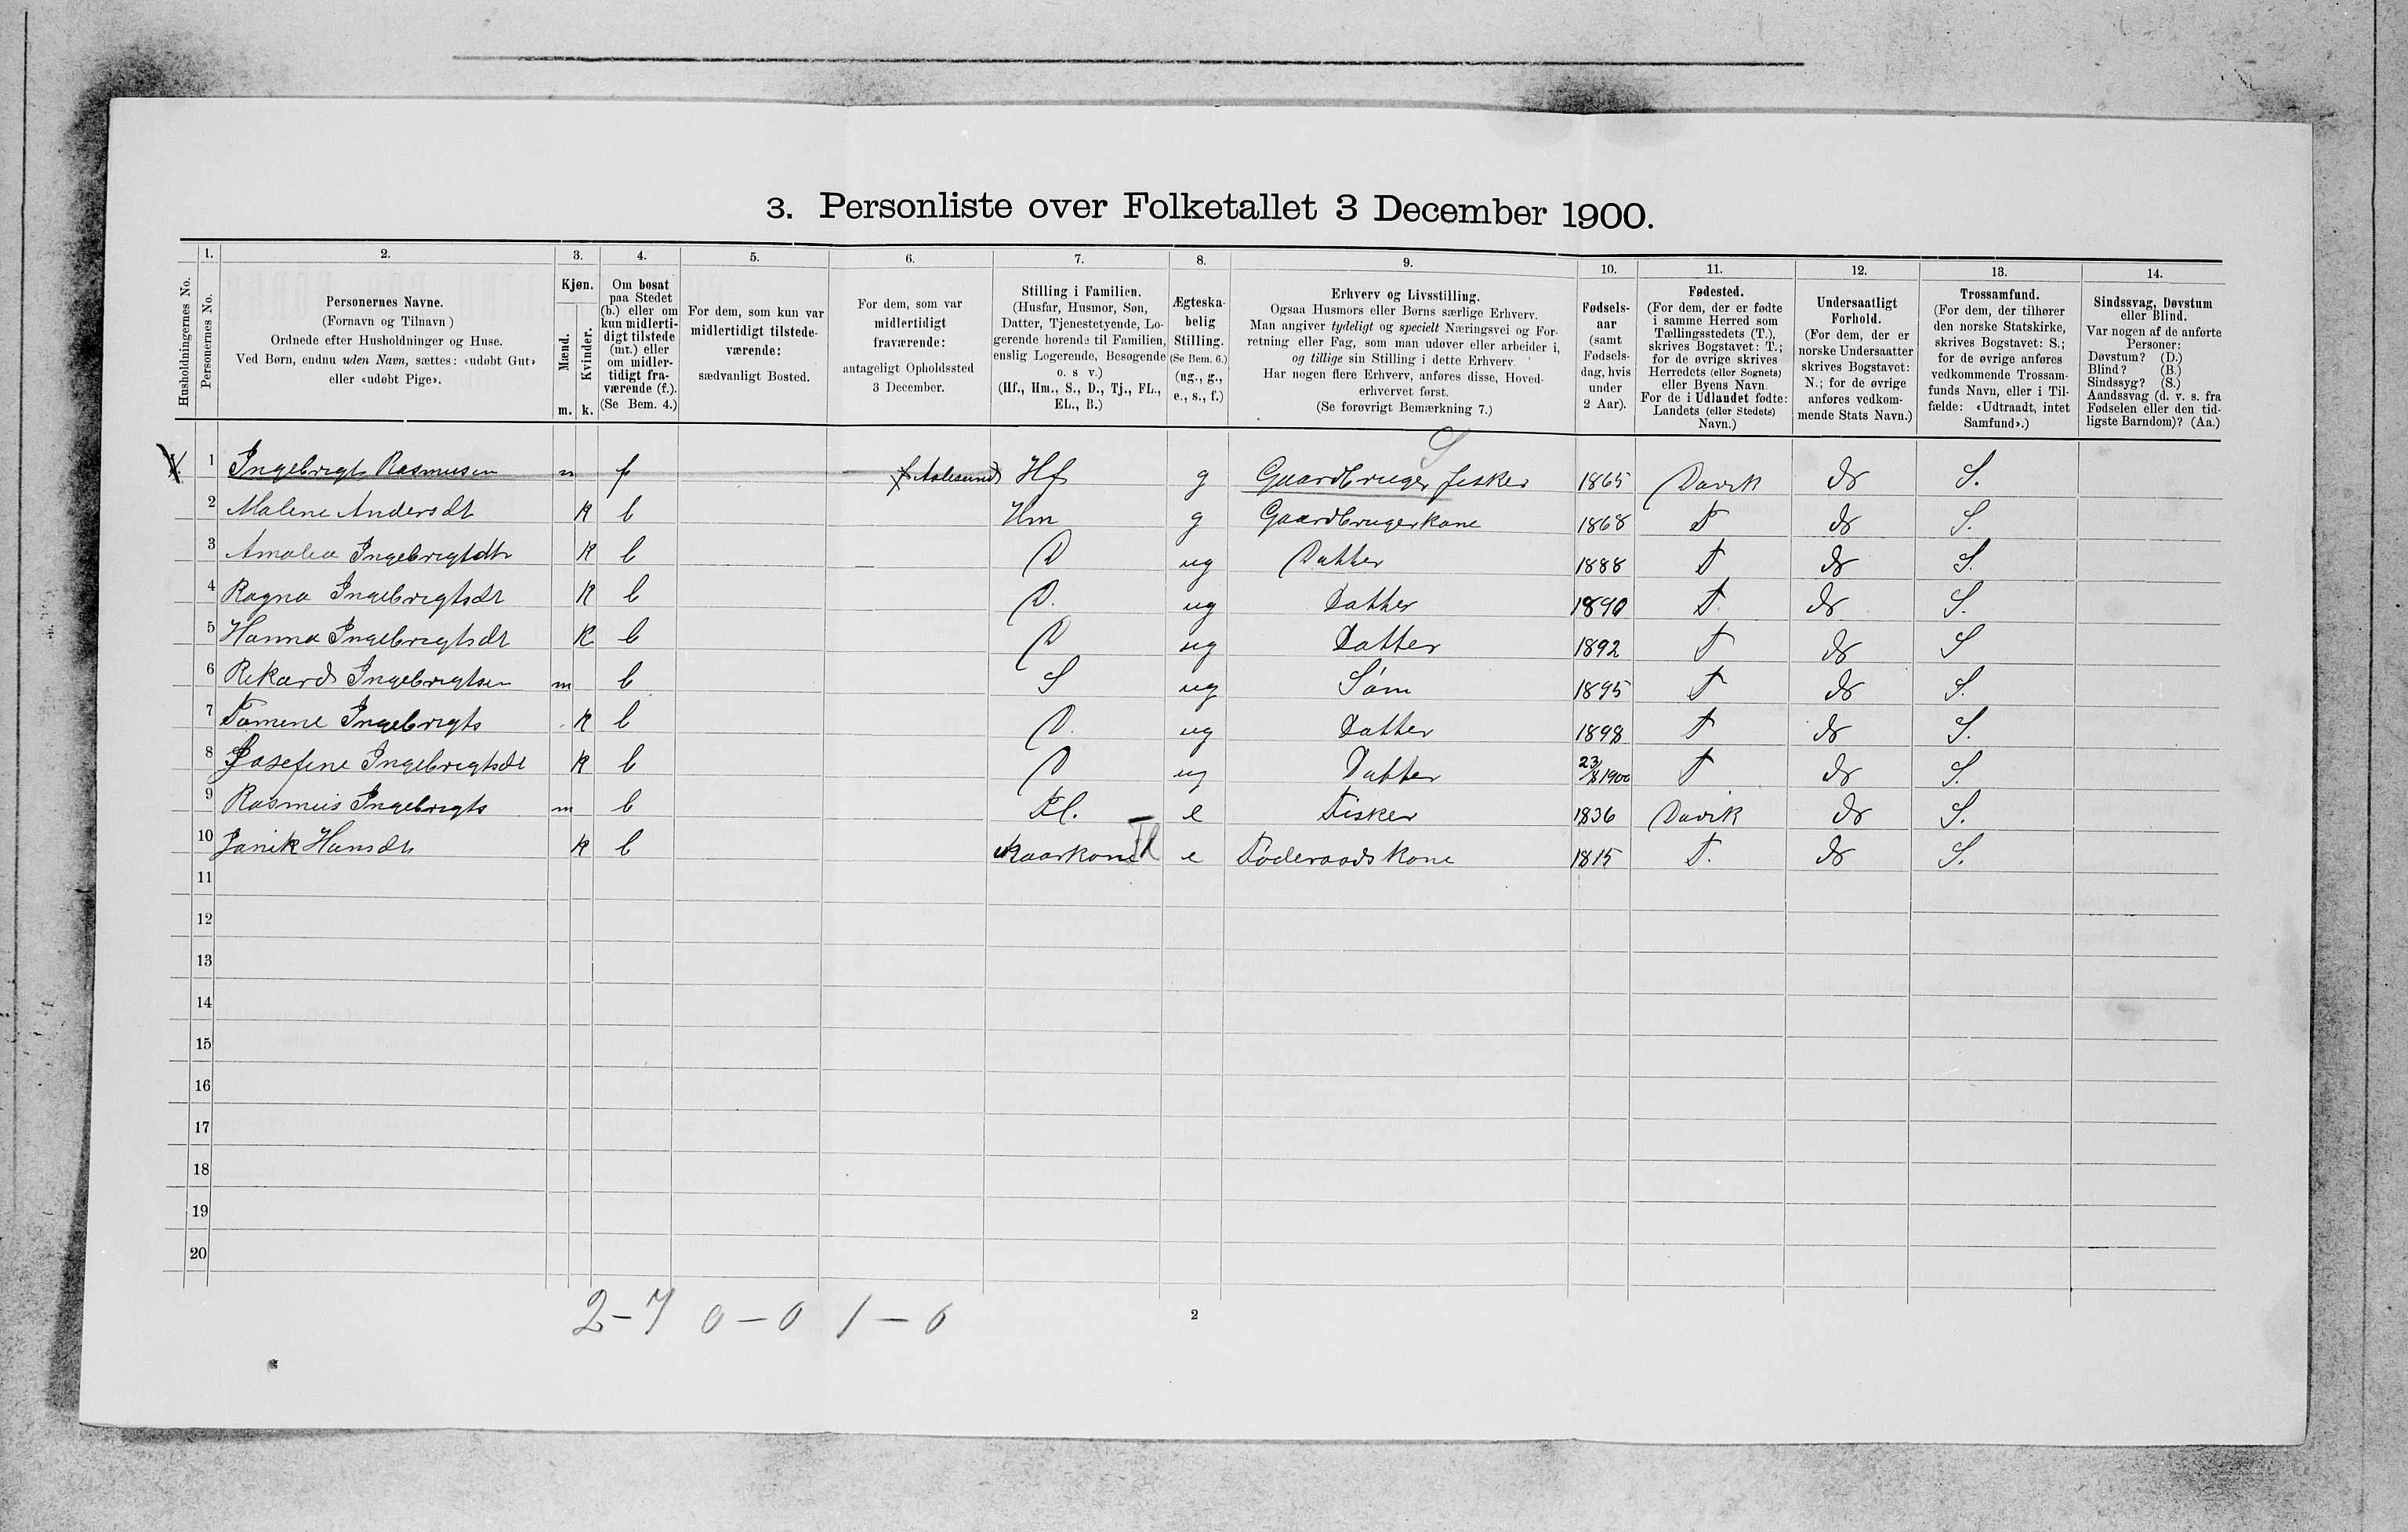 3. Personliste over Folketallet 3 December 1900.
Husholdningernes No.
1. Personernes No.
2. Personernes Navne.
(Fornavn og Tilnavn)
Ordnede efter Husholdninger og Huse.
Ved Børn, endnu uden Navn, sættes: «udøbt Gut»
eller «udøbt Pige».
3. Kjøn.
Mænd. m.
Kvinder. k.
4. Om bosat
paa Stedet
(b.) eller om
kun midlerti-
digt tilstede
(mt.) eller
om midler-
tidigt fra-
værende (f.).
(Se Bem. 4.)
5. For dem, som kun var
midlertidigt tilstede-
værende:
sædvanligt Bosted.
6. For dem, som var
midlertidigt
fraværende:
antageligt Opholdssted
3 December.
7. Stilling i Familien.
(Husfar, Husmor, Søn,
Datter, Tjenestetyende, Lo-
gerende hørende til Familien,
enslig Logerende, Besøgende
o. s v.)
(Hf., Hm., S., D., Tj., FL.,
EL., B.)
8. Ægteska-
belig
Stilling.
(Se Bem. 6.)
(ug., g.,
e., s., f.)
9. Erhverv og Livsstilling.
Ogsaa Husmors eller Børns særlige Erhverv.
Man angiver tydeligt og specielt Næringsvei og For-
retning eller Fag, som man udøver eller arbeider i,
og tillige sin Stilling i dette Erhverv.
Har nogen flere Erhverv, anføres disse, Hoved-
erhvervet først.
(Se forøvrigt Bemærkning 7.)
10. Fødsels-
aar
(samt
Fødsels-
dag, hvis
under
2 Aar).
11. Fødested.
(For dem, der er fødte
i samme Herred som
Tællingsstedets (T.),
skrives Bogstavet: T.;
for de øvrige skrives
Herredets (eller Sognets)
eller Byens Navn.
For de i Udlandet fødte:
Landets (eller Stedets)
Navn.)
12. Undersaatligt
Forhold.
(For dem, der er
norske Undersaatter
skrives Bogstavet:
N.; for de øvrige
anføres vedkom-
mende Stats Navn.)
13. Trossamfund.
(For dem, der tilhører
den norske Statskirke,
skrives Bogstavet: S.;
for de øvrige anføres
vedkommende Trossam-
funds Navn, eller i Til-
fælde: «Udtraadt, intet
Samfund».)
14. Sindssvag, Døvstum
eller Blind.
Var nogen af de anførte
Personer:
Døvstum? (D.)
Blind? (B.)
Sindssyg? (S.)
Aandssvag (d. v. s. fra
Fødselen eller den tid-
ligste Barndom)? (Aa.)
S
1 Ingebrigt Rasmusen m f Aalesund Hf g Gaardbruger fisker 1865 Davik N S.
2 Malene Andersdt K b Hm g Gaardbrugerkone 1868 T N S.
3 Amalea Ingebrigtdtr K b D ug Datter 1888 T N S.
4 Ragna Ingebrigtsdt K b D. ug Datter 1890 T. N S.
5 Hanna Ingebrigtsdt K b D ug Datter 1892 T N S
6 Rekard Ingebrigtsen m b S ug Søm 1895 T N S.
7 Tomene Ingebrigts K b D. ug Datter 1898 T N S.
8 Josefine Ingebrigtsdt K b D ug Datter 23/8 1900 T N S.
9 Rasmus Ingebrigts m b Fl. e Fisker 1836 Davik N S.
10 Janik Hansdt K b Kaarkone Fl e Føderaadskone 1815 T. N S.
11
12
13
14
15
16
17
18
19
20
2-7 0-0 1-0
2